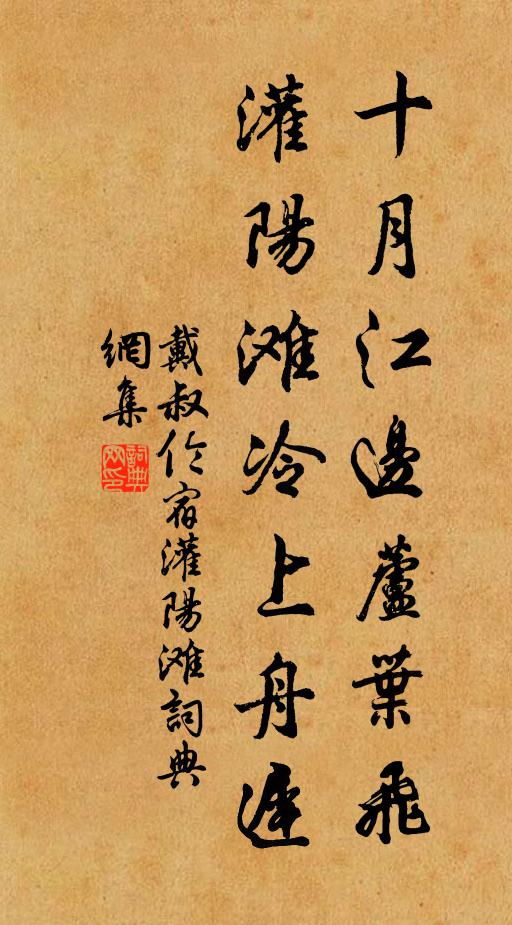 十月江邊蘆葉飛
灌陽滩冷上舟遲
戴叔伦宿灌陽滩詞典
網集
詞典
网印